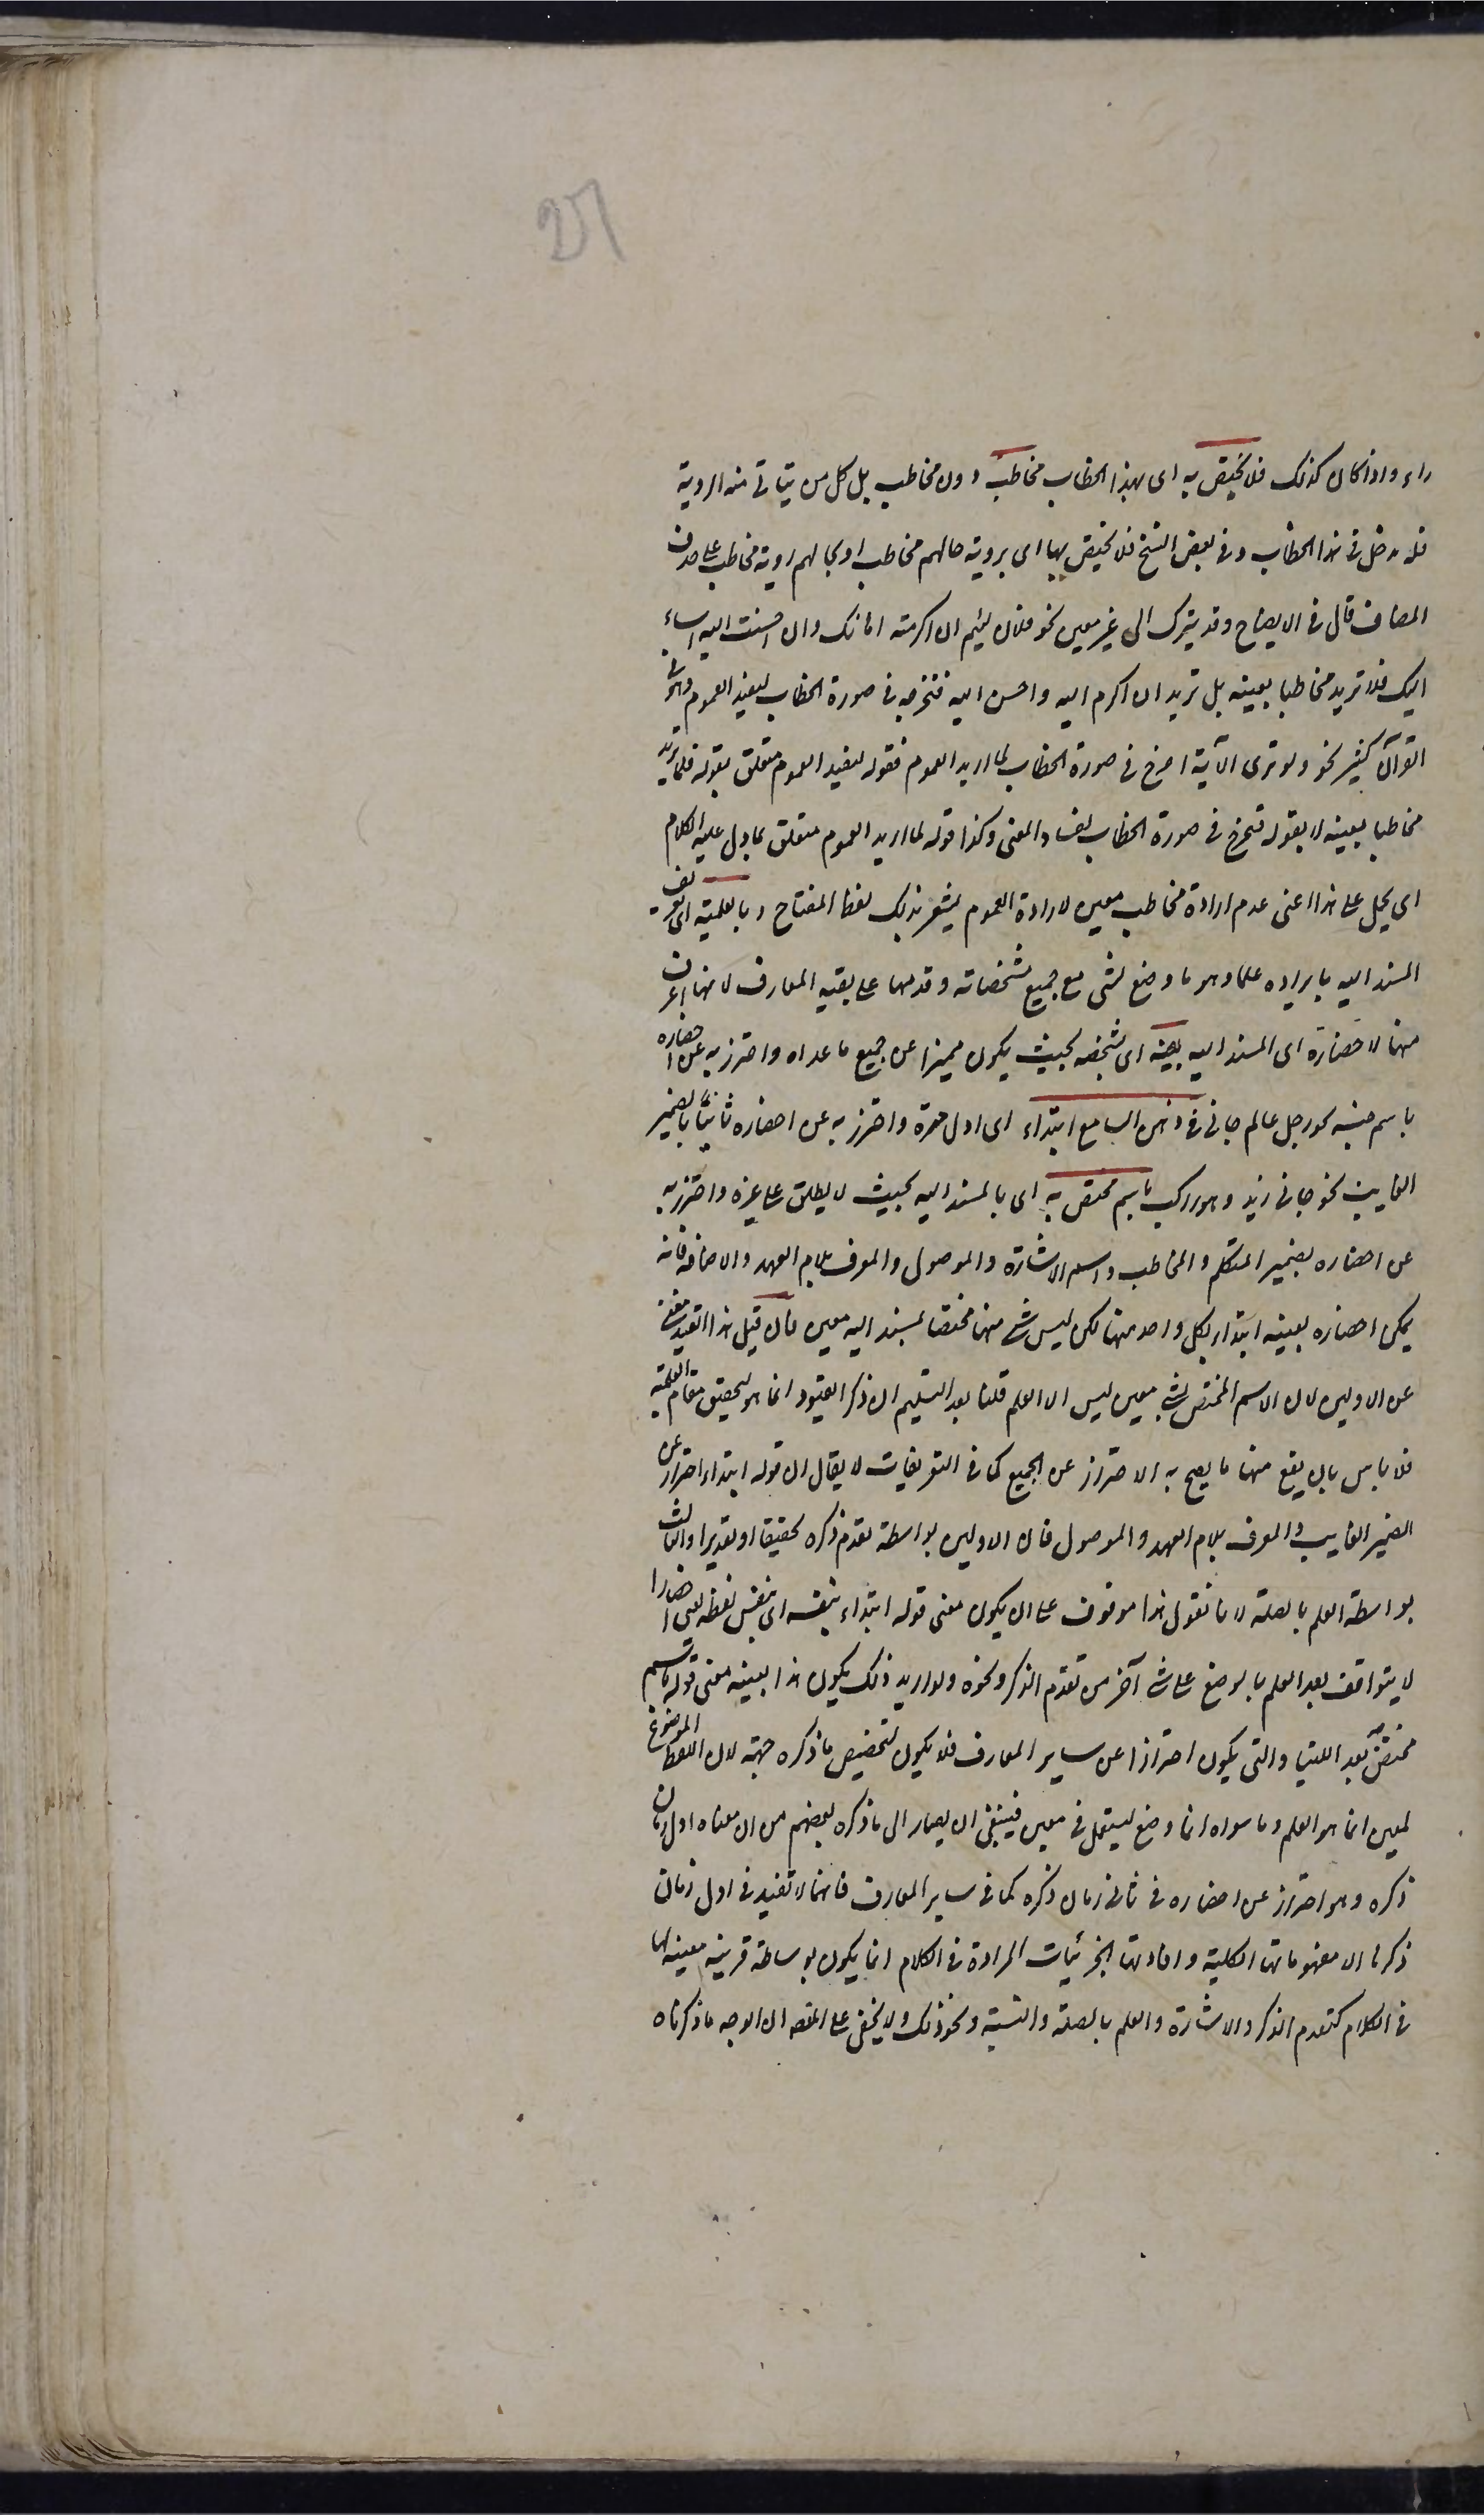 راء واذا كان كذلك فلا يختص به اى بهذا الخطاب مخاطب دون مخاطب بل كل من يتاتى منه الروية
فله مدخل فى هذا الخطاب وفى بعض النسخ فلا يختص بها اى بروية حالهم مخاطب او بحالهم روية مخاطب على حذف
المضاف قال فى الايضاح وقد يترك الى غير معين نحو فلان لئيم ان اكرمته اهانك وان احسنت اليه اساء
اليك فلا تريد مخاطبا بعينه بل تريد ان اكرم اليه واحسن اليه فتخرجه فى صورة الخطاب ليفيد العموم وهو فى
القرآن كثير نحو ولو ترى الآية اخرج فى صورة الخطاب لما اريد العموم فقوله ليفيد العموم متعلق بقوله فلا تريد
مخاطبا بعينه لا بقوله فتخرج فى صورة الخطاب لفساد المعنى وكذا قوله لما اريد العموم متعلق بما دل عليه الكلام
اى يحمل على هذا اعنى عدم ارادة مخاطب معين لارادة العموم يشعر بذلك لفظ المفتاح وبالعلمية اى تعريف
المسند اليه بايراده علما وهو ما وضع لشى مع جميع مشخصاته وقدمها على بقية المعارف لانها اعرف
منها لاحضاره اى المسند اليه بعينه اى بشخصه بحيث يكون مميزا عن جميع ما عداه واحترز به عن احضاره
باسم جنسه نحو رجل عالم جانى فى ذهن السامع ابتداء اى اول مرة واحترز به عن احضاره ثانيا بالضمير
الغايب نحو جانى زيد وهو راكب باسم مختص به اى بالمسند اليه بحيث لا يطلق على غيره واحترز به
عن احضاره بضمير المتكلم والمخاطب واسم الاشارة والموصول والمعرف بلام العهد والاضافة فانه
يمكن احضاره بعينه ابتداء بكل واحد منها لكن ليس شى منها مختصا بمسند اليه معين فان قيل هذا القيد مغن
عن الاولين لان الاسم المختص بشى معين ليس الا العلم قلنا بعد التسليم ان ذكر القيود انما هو لتحقيق مقام العلمية
فلا باس بان يقع منها ما يصح به الاحتراز عن الجميع كما فى التعريفات لا يقال ان قوله ابتداء احتراز عن
الضمير الغايب والمعرف بلام العهد والموصول فان الاولين بواسطة تقدم ذكره تحقيقا او تقديرا والثالث
بواسطة العلم بالصلة لانا نقول هذا موقوف على ان يكون معنى قوله ابتداء بنفسه اى بنفس لفظه يعنى احضارا
لا يتوقف بعد العلم بالوضع على شى آخر من تقدم الذكر ونحوه ولو اريد ذلك يكون هذا بعينه معنى قوله باسم
مختص به بعد اللتيا والتى يكون احترازا عن ساير المعارف فلا يكون لتخصيص ما ذكره جهة لان اللفظ الموضوع
لمعين انما هو العلم وما سواه انما وضع ليستعمل فى معين فينبغى ان يصار الى ما ذكره بعضهم من ان معناه اول زمان
ذكره وهو احتراز عن احضاره فى ثانى زمان ذكره كما فى ساير المعارف فانها لا تفيد فى اول زمان
ذكرها الا مفهوماتها الكلية وافادتها الجزئيات المرادة فى الكلام انما يكون بوساطة قرينة معينة لها
فى الكلام كتقدم الذكر والاشارة والعلم بالصلة والنسبة ونحو ذلك ولا يخفى على المنصف ان الوجه ما ذكرناه